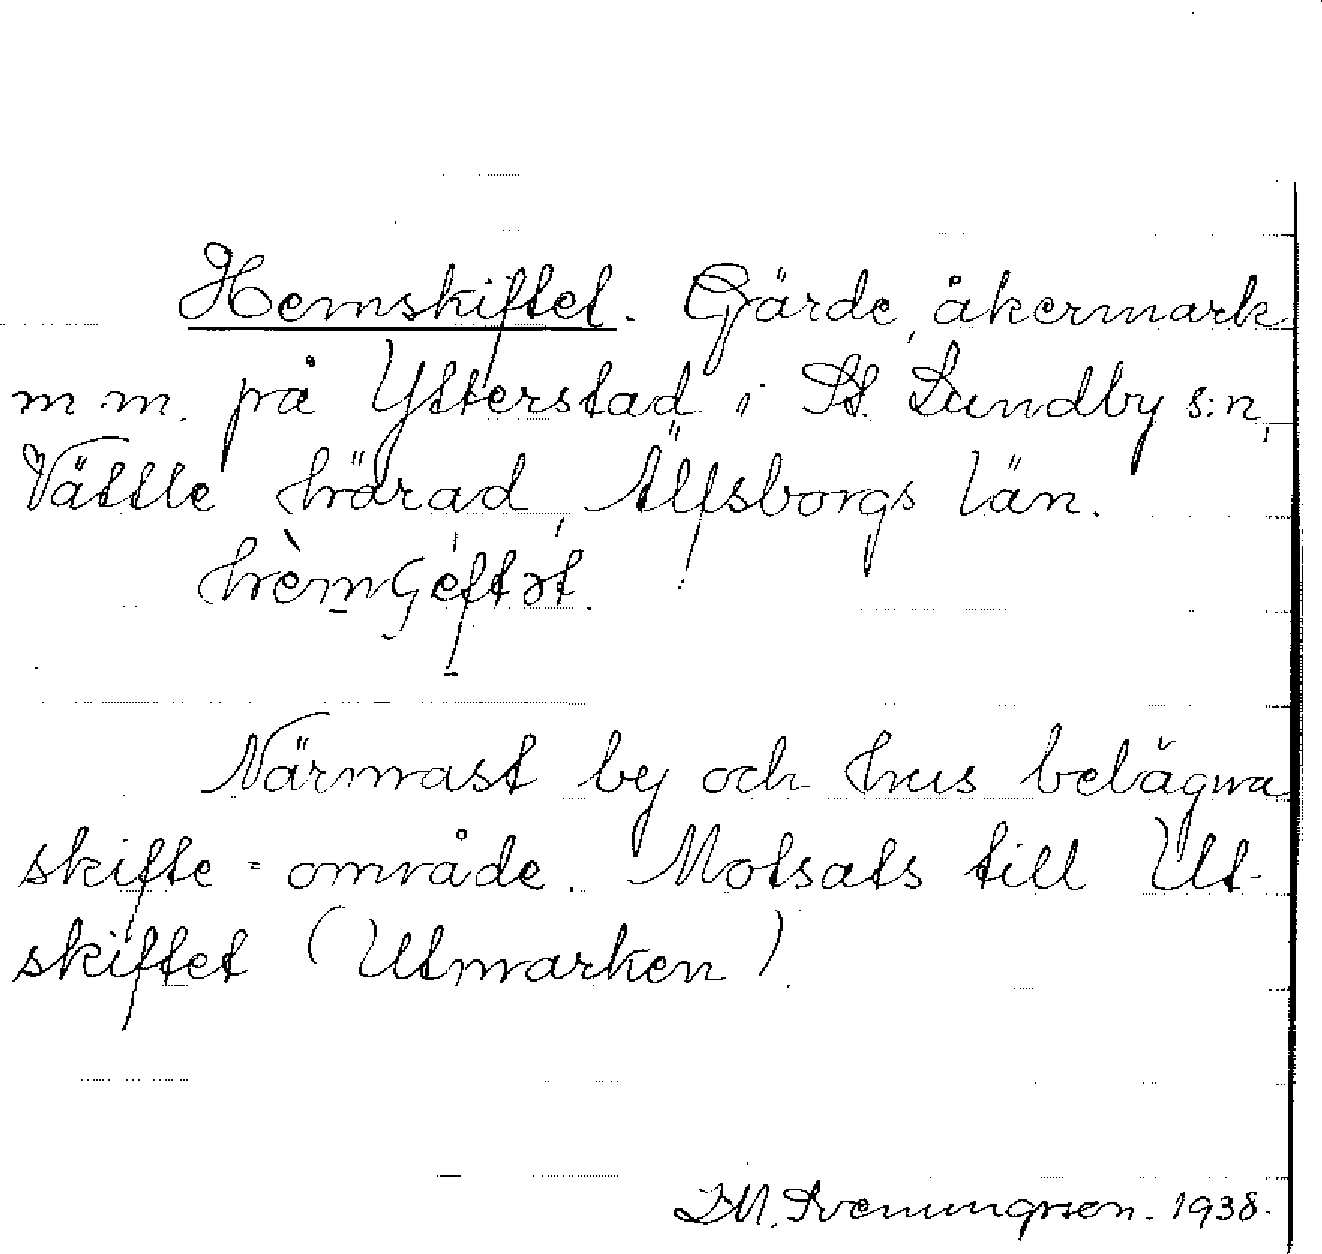 Hemskiftet. Gärde, åkermark
m.m. på Ytterstad i St. Lundby s:n,
Vättle härad, Älfsborgs län.

Närmast by och hus belägna
skifte-område. Motsats till Ut-
skiftet (Utmarken).
I.M. Svenungsson. 1938.